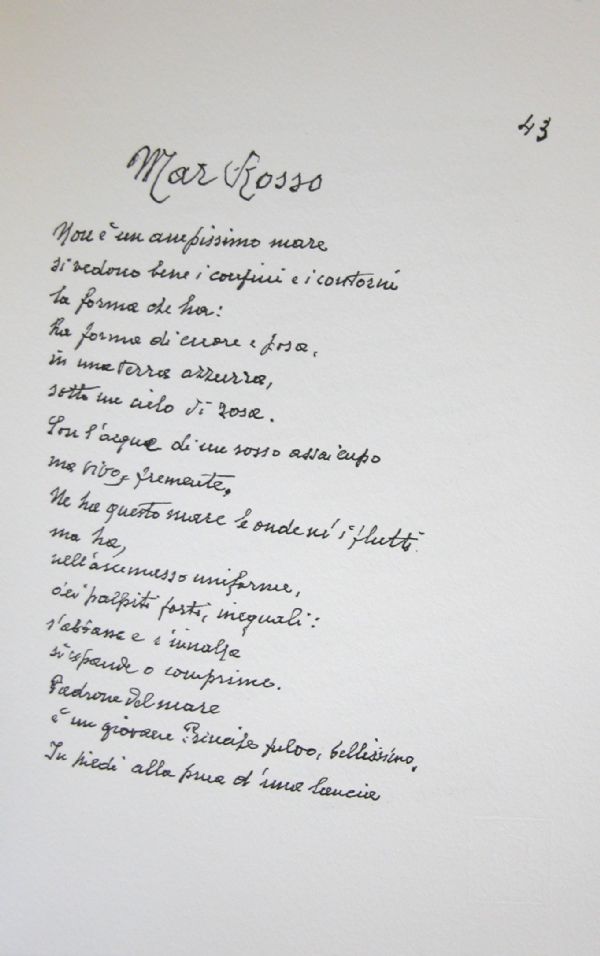 43
Mar Rosso
Non è un ampissimo mare
si vedono bene i confini e i contorni
la forma che ha:
ha forma di cuore e posa,
in una terra azzurra,
sotto un cielo di rosa.
Son l'acque di un rosso assai cupo
ma vivo, fremente,
Ne ha questo mare le onde né i flutti
ma ha,
nell'ammasso uniforme,
dei palpiti forti, ineguali:
s'abbassa e s'innalza
si espande o comprime.
Padrone del mare
è un giovane Principe fulvo, bellissimo,
In piedi alla prua d'una lancia